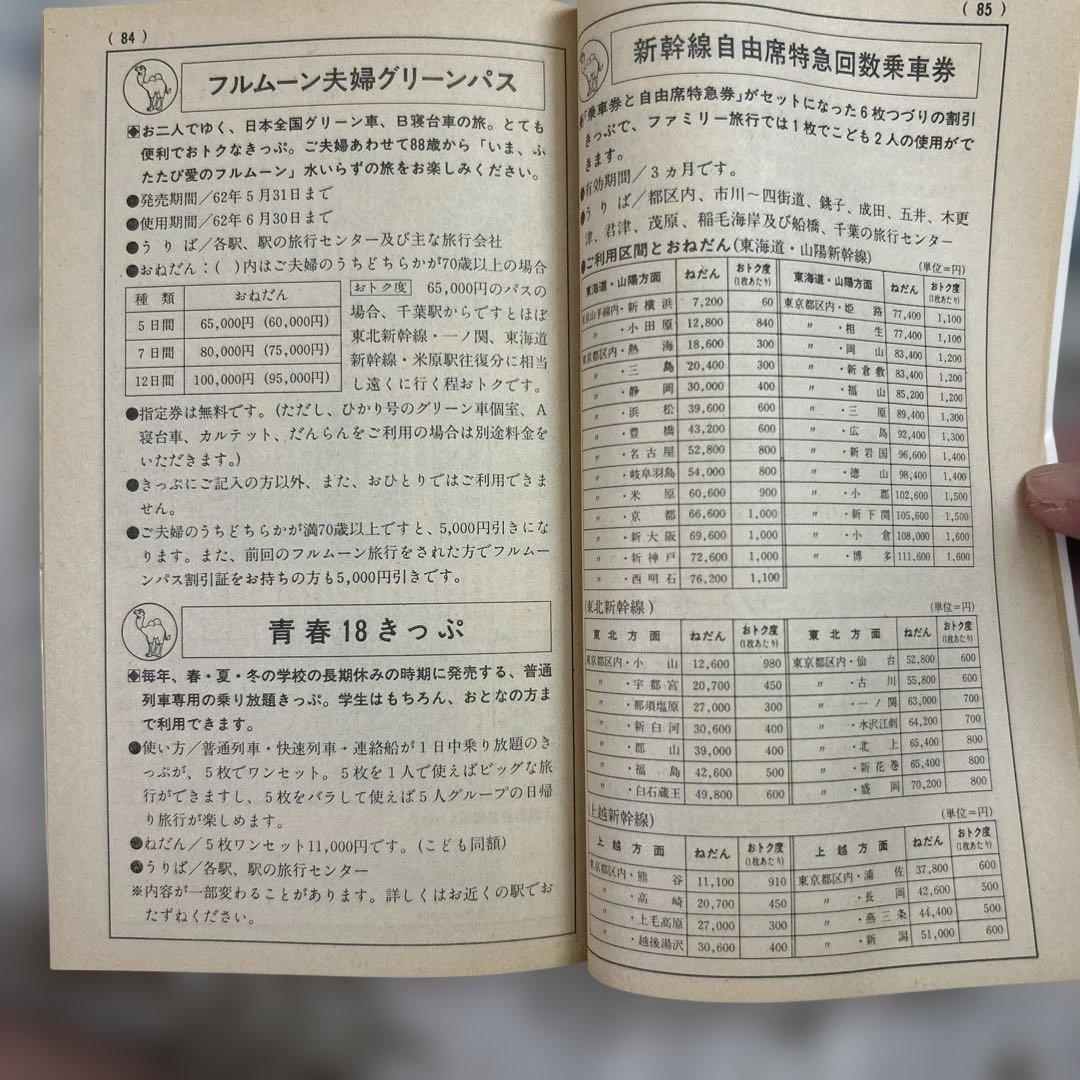 ( 84 )
フルムーン夫婦グリーンパス
◆お二人でゆく、日本全国グリーン車、B寝台車の旅。とても
便利でおトクなきっぷ。ご夫婦あわせて88歳から「いま、ふ
たたび愛のフルムーン」水いらずの旅をお楽しみください。
●発売期間/62年5月31日まで
●使用期間/62年6月30日まで
●うりば/各駅、駅の旅行センター及び主な旅行会社
●おねだん:( )内はご夫婦のうちどちらかが70歳以上の場合
種類 おねだん
5日間 65,000円 (60,000円)
7日間 80,000円 (75,000円)
12日間 100,000円 (95,000円)
おトク度 65,000円のパスの
場合、千葉駅からですとほぼ
東北新幹線・一ノ関、東海道
新幹線・米原駅往復分に相当
し遠くに行く程おトクです。
●指定券は無料です。(ただし、ひかり号のグリーン車個室、A
寝台車、カルテット、だんらんをご利用の場合は別途料金を
いただきます。)
●きっぷにご記入の方以外、また、おひとりではご利用できま
せん。
●ご夫婦のうちどちらかが満70歳以上ですと、5,000円引きにな
ります。また、前回のフルムーン旅行をされた方でフルムー
ンパス割引証をお持ちの方も5,000円引きです。
青春18きっぷ
◆毎年、春・夏・冬の学校の長期休みの時期に発売する、普通
列車専用の乗り放題きっぷ。学生はもちろん、おとなの方ま
で利用できます。
●使い方/普通列車・快速列車・連絡船が1日中乗り放題のき
っぷが、5枚でワンセット。5枚を1人で使えばビッグな旅
行ができますし、5枚をバラして使えば5人グループの日帰
り旅行が楽しめます。
●ねだん/5枚ワンセット11,000円です。(こども同額)
●うりば/各駅、駅の旅行センター
※内容が一部変わることがあります。詳しくはお近くの駅でお
たずねください。
( 85 )
新幹線自由席特急回数乗車券
◆「乗車券と自由席特急券」がセットになった6枚つづりの割引
きっぷで、ファミリー旅行では1枚でこども2人の使用がで
きます。
●有効期間/3ヵ月です。
●うりば/都区内、市川~四街道、銚子、成田、五井、木更
津、君津、茂原、稲毛海岸及び船橋、千葉の旅行センター
●ご利用区間とおねだん(東海道・山陽新幹線)
(単位=円)
東海道・山陽方面 ねだん おトク度(1枚あたり) 東海道・山陽方面 ねだん おトク度(1枚あたり)
東京山手線内・新横浜 7,200 60 東京都区内・姫路 77,400 1,100
〃・小田原 12,800 840 〃・相生 77,400 1,100
東京都区内・熱海 18,600 300 〃・岡山 83,400 1,200
〃・三島 20,400 300 〃・新倉敷 83,400 1,200
〃・静岡 30,000 400 〃・福山 85,200 1,200
〃・浜松 39,600 600 〃・三原 89,400 1,300
〃・豊橋 43,200 600 〃・広島 92,400 1,300
〃・名古屋 52,800 800 〃・新岩国 96,600 1,400
〃・岐阜羽島 54,000 800 〃・徳山 98,400 1,400
〃・米原 60,600 900 〃・小郡 102,600 1,500
〃・京都 66,600 1,000 〃・新下関 105,600 1,500
〃・新大阪 69,600 1,000 〃・小倉 108,000 1,600
〃・新神戸 72,600 1,000 〃・博多 111,600 1,600
〃・西明石 76,200 1,100
(東北新幹線)
(単位=円)
東北方面 ねだん おトク度(1枚あたり) 東北方面 ねだん おトク度(1枚あたり)
東京都区内・小山 12,600 980 東京都区内・仙台 52,800 600
〃・宇都宮 20,700 450 〃・古川 55,800 600
〃・那須塩原 27,000 300 〃・一ノ関 63,000 700
〃・新白河 30,600 400 〃・水沢江刺 64,200 700
〃・郡山 39,000 400 〃・北上 65,400 800
〃・福島 42,600 500 〃・新花巻 65,400 800
〃・白石蔵王 49,800 600 〃・盛岡 70,200 800
(上越新幹線)
(単位=円)
上越方面 ねだん おトク度(1枚あたり) 上越方面 ねだん おトク度(1枚あたり)
東京都区内・熊谷 11,100 910 東京都区内・浦佐 37,800 600
〃・高崎 20,700 450 〃・長岡 42,600 500
〃・上毛高原 27,000 300 〃・燕三条 44,400 500
〃・越後湯沢 30,600 400 〃・新潟 51,000 600